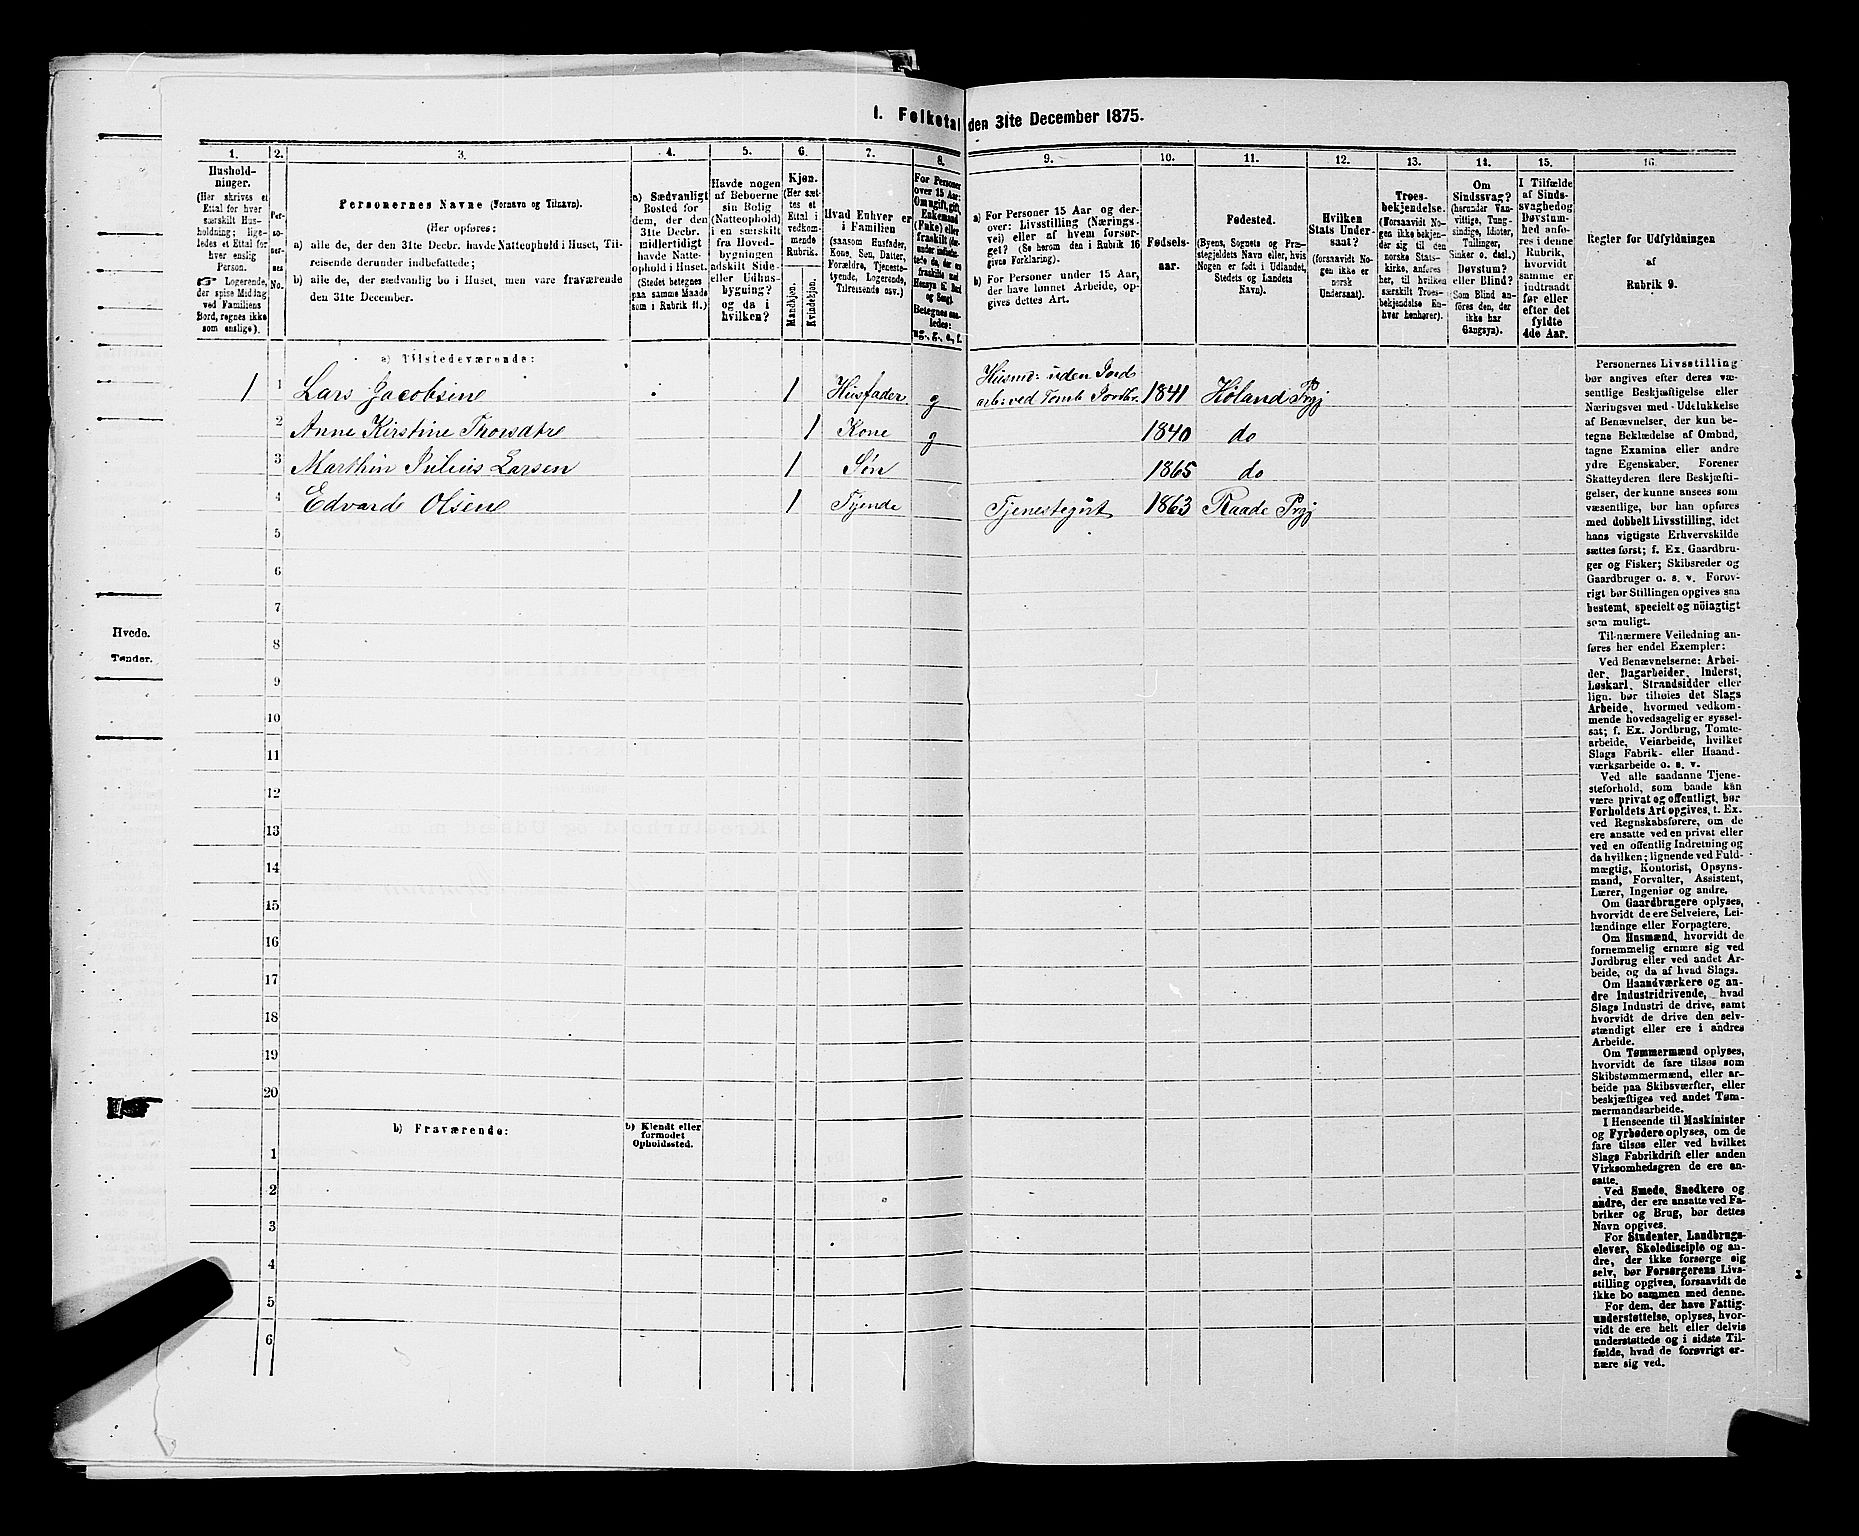 I. Folketal den 31te December 1875.
1. 2. 3. 4. 5. 6. 7. 8. 9. 10. 11. 12. 13. 14. 15. 16.
Hushold-
ninger.
(Her skrives et
Ettal for hver
særskilt Hus-
holdning; lige-
ledes et Ettal for
hver enslig
Person.
Logerende,
der spise Middag
ved Familiens
Bord, regnes ikke
som enslige).
Per-
so-
ner-
nes
No.
Personernes Navne (Fornavn og Tilnavn).
(Her opføres:
a) alle de, der den 31te Decbr. havde Natteophold i Huset, Til-
reisende derunder indbefattede;
b) alle de, der sædvanlig bo i Huset, men vare fraværende
den 31te December.
a) Sædvanligt
Bosted for
dem, der den
31te Decbr.
midlertidigt
havde Natte-
ophold i Huset.
(Stedet betegnes
paa samme Maade
som i Rubrik 11.)
Havde nogen
af Beboerne
sin Bolig
(Natteophold)
i en særskilt
fra Hoved-
bygningen
adskilt Side-
eller Udhus-
bygning?
og da i
hvilken?
Kjøn.
(Her sæt-
tes et
Ettal i
vedkom-
mende
Rubrik.
Mandkjøn.
Kvindekjøn.
Hvad Enhver er
i Familien
(saasom Husfader,
Kone, Søn, Datter,
Forældre, Tjeneste-
tyende, Logerende,
Tilreisende osv.)
For Personer
over 15 Aar:
Om ugift, gift,
Enkemand
(Enke) eller
fraskilt
Betegnes saa-
ledes:
ug., g., e., f.
a) For Personer 15 Aar og der-
over: Livsstilling (Nærings-
vei) eller af hvem forsør-
get? (Se herom den i Rubrik 16
givne Forklaring).
b) For Personer under 15 Aar,
der have lønnet Arbeide, op-
gives dettes Art.
Fødsels-
aar.
Fødested.
(Byens, Sognets og Præ-
stegjeldets Navn eller, hvis
Nogen er født i Udlandet,
Stedets og Landets
Navn).
Hvilken
Stats Under-
saat?
(forsaavidt No-
gen ikke er
norsk
Undersaat).
Troes-
bekjendelse.
(Forsaavidt No-
gen ikke bekjen-
der sig til den
norske Stats-
kirke, anføres
her, til hvilken
særskilt Troes-
bekjendelse En-
hver henhører).
Om
Sindssvag?
(herunder Van-
vittige, Tung-
sindige, Idioter,
Tullinger,
Sinker o. desl.)
Døvstum?
eller Blind?
(Som Blind an-
føres den, der
ikke har
Gangsyn).
I Tilfælde
af Sinds-
svaghed og
Døvstum-
hed anfø-
res i denne
Rubrik,
hvorvidt
samme er
indtraadt
før eller
efter det
fyldte
4de Aar.
Regler for Udfyldningen
af
Rubrik 9.
a) Tilstedeværende:
1 1 Lars Jacobsen 1 Husfader g Husmd: uden Jord arb: ved Tomt. Jordbr. 1841 Høland Prgj
2 Anne Kirstine Thorsdatre 1 Kone g 1840 do
3 Marthin Julius Larsen 1 Søn 1865 do
4 Edvard Olsen 1 Tyende Tjenestegut 1863 Raade Prgj
5
6
7
8
9
10
11
12
13
14
15
16
17
18
19
20
b) Fraværende:
b) Kjendt eller
formodet
Opholdssted.
1
2
3
4
5
6
Personernes Livsstilling
bør angives efter deres væ-
sentlige Beskjæftigelse eller
Næringsvei med Udelukkelse
af Benævnelser, der kun be-
tegne Beklædelse af Ombud,
tagne Examina eller andre
ydre Egenskaber. Forener
Skatteyderen flere Beskjæfti-
gelser, der kunne ansees som
væsentlige, bør han opføres
med dobbelt Livsstilling, idet
hans vigtigste Erhvervskilde
sættes først; f. Ex. Gaardbru-
ger og Fisker; Skibsreder og
Gaardbruger o. s. v. Forøv-
rigt bør Stillingen opgives saa
bestemt, specielt og nöiagtigt
som muligt.
Til nærmere Veiledning an-
føres her endel Exempler:
Ved Benævnelserne: Arbei-
der, Dagarbeider, Inderst,
Løskarl, Strandsidder eller
lign. bør tilføies det Slags
Arbeide, hvormed vedkom-
mende hovedsagelig er syssel-
sat; f. Ex. Jordbrug, Tomte-
arbeide, Veiarbeide, hvilket
Slags Fabrik- eller Haand-
værksarbeide o. s. v.
Ved alle saadanne Tjene-
steforhold, som baade kan
være privat og offentligt, bør
Forholdets Art opgives, t. Ex.
ved Regnskabsførere, om de
ere ansatte ved en privat eller
ved en offentlig Indretning og
da hvilken; lignende ved Fuld-
mægtig, Kontorist, Opsyns-
mand, Forvalter, Assistent,
Lærer, Ingeniør og andre.
Om Gaardbrugere oplyses,
hvorvidt de ere Selveiere, Lei-
lændinge eller Forpagtere.
Om Husmænd, hvorvidt de
fornemmelig ernære sig ved
Jordbrug eller ved andet Ar-
beide, og da af hvad Slags.
Om Haandværkere og an-
dre Industridrivende, hvad
Slags Industri de drive, samt
hvorvidt de drive den selv-
stændigt eller ere i andres
Arbeide.
Om Tømmermænd oplyses,
hvorvidt de fare tilsøs som
Skibstømmermænd, eller ar-
beide paa Skibsværfter, eller
beskjæftiges ved andet Tøm-
mermandsarbeide.
I Henseende til Maskinister
og Fyrbødere oplyses, om de
fare tilsøs eller ved hvilket
Slags Fabrikdrift eller anden
Virksomhedsgren de ere an-
satte.
Ved Smede, Snedkere og
andre, der ere ansatte ved Fa-
briker og Brug, bør dettes
Navn opgives.
For Studenter, Landbrugs-
elever, Skoledisciple og an-
dre, der ikke forsørge sig
selv, bør Forsørgerens Livs-
stilling opgives, forsaavidt de
ikke bo sammen med denne.
For dem, der have Fattig-
understøttelse, oplyses, hvor-
vidt de ere helt eller delvis
understøttede og i sidste Til-
fælde, hvad de forøvrigt er-
nære sig ved.
Hvede.
Tønder.